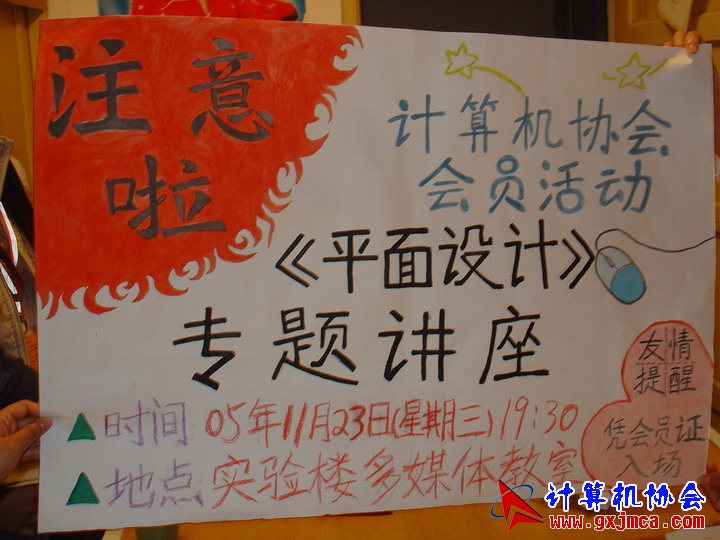 注意
啦
计算机协会
会员活动
《平面设计》
专题讲座
▲时间 05年11月23日(星期三)19:30
▲地点 实验楼多媒体教室
友情
提醒
凭会员证
入场
计算机协会
www.gxjmca.com